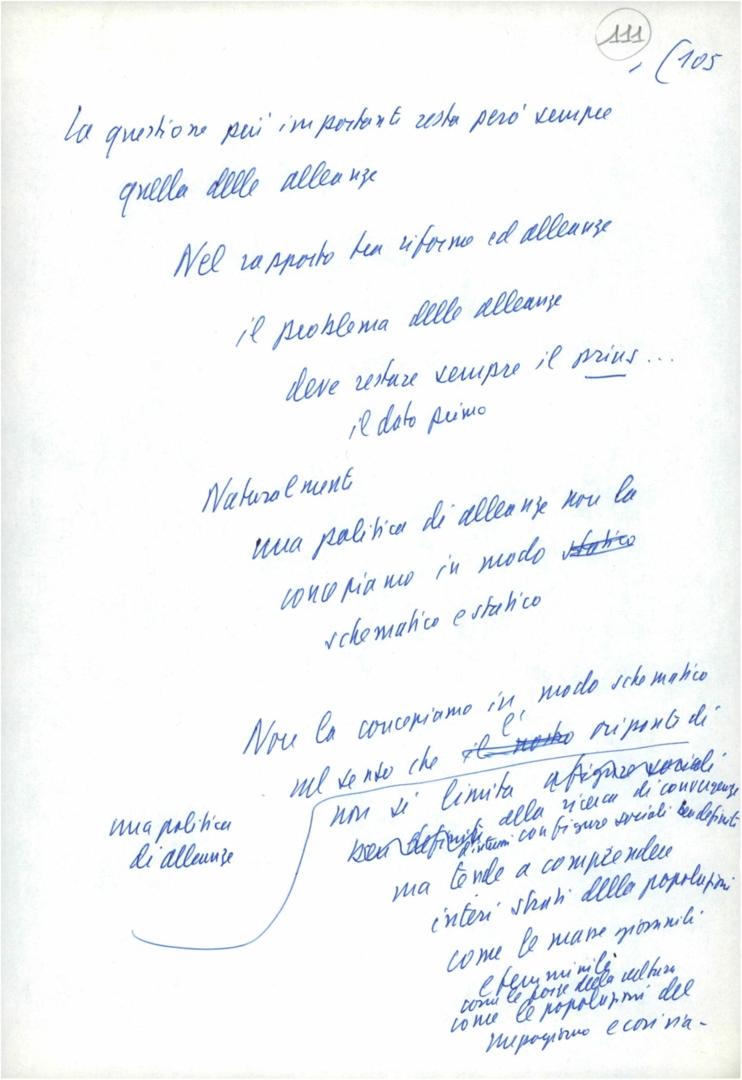 111
(105
La questione più importante resta però sempre
quella delle alleanze
Nel rapporto tra riforme ed alleanze
il problema delle alleanze
deve restare sempre il prius...
il dato primo
Naturalmente
una politica di alleanze non la
concepiamo in modo statico
schematico e statico
Non la concepiamo in modo schematico
nel senso che il nostro
non si limita a figure sociali
ben definite alla ricerca di convergenze
con figure sociali ben definite
una politica
di alleanze
ma tende a comprendere
interi strati della popolazione
come le masse giovanili
e femminili
come le forze della cultura
come le popolazioni del
mezzogiorno e così via-